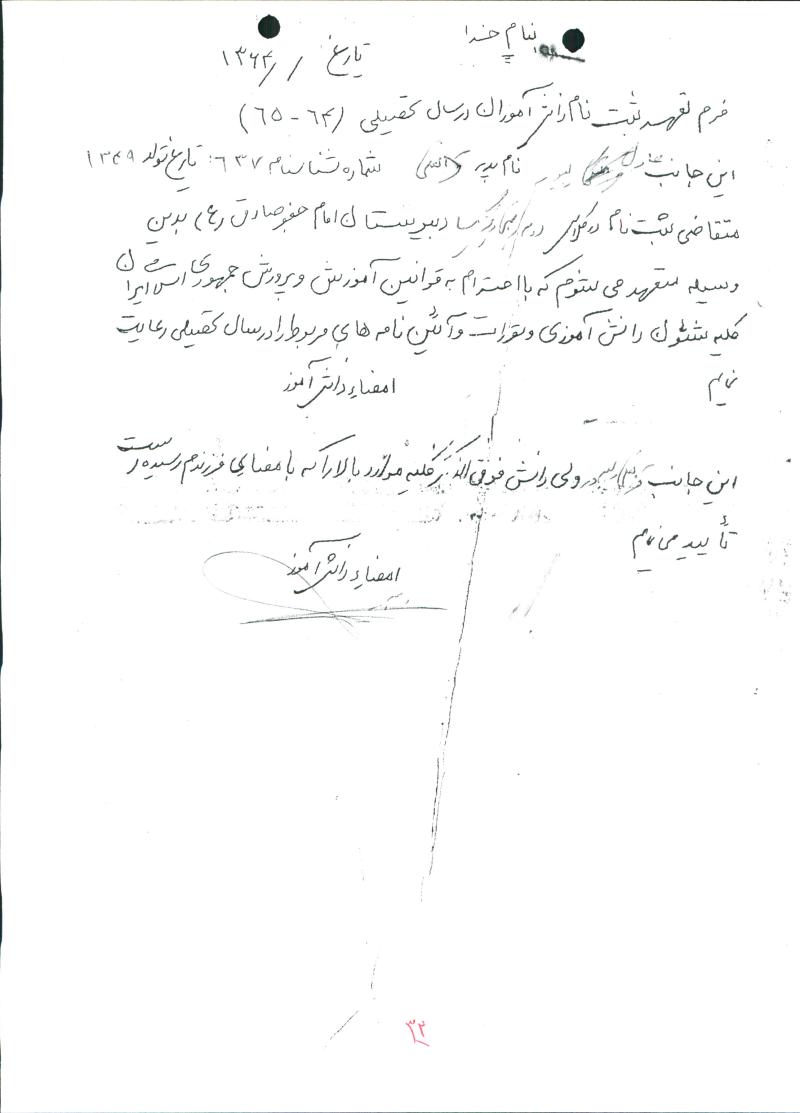 بنام خدا
تاریخ / / ۱۳۶۴
فرم تعهد ثبت نام دانش آموزان در سال تحصیلی (۶۴ - ۶۵)
این جانب عادل نام پدر شماره شناسنامه ۶۳۷: تاریخ تولد ۱۳۴۹
متقاضی ثبت نام در کلاس دوم دبیرستان امام جعفر صادق (ع) بدین
وسیله متعهد می شوم که با احترام به قوانین آموزش و پرورش جمهوری اسلامی ایران
کلیه شئون دانش آموزی و مقررات و آئین نامه های مربوط را در سال تحصیلی رعایت
نمایم
امضاء دانش آموز
این جانب ولی دانش فوق الذکر کلیه موارد بالا را که با مضای فرزندم رسیده است
تأیید می نمایم
امضاء دانش آموز
۳۲